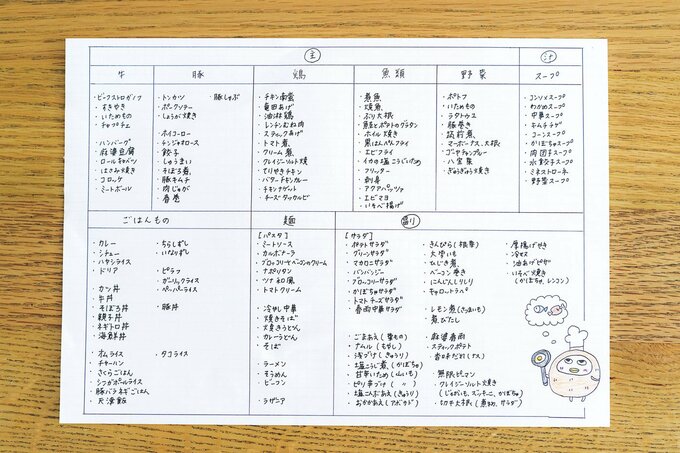 主
汁
牛
豚
鶏
魚類
野菜
スープ
・ビーフストロガノフ
・すきやき
・いためもの
・チャプチェ
・ハンバーグ
・麻婆豆腐
・ロールキャベツ
・はさみ焼き
・コロッケ
・ミートボール
・トンカツ
・ポークソテー
・しょうが焼き
・ホイコーロー
・チンジャオロース
・餃子
・しゅうまい
・そぼろ煮
・豚キムチ
・肉じゃが
・春巻
・豚しゃぶ
・チキン南蛮
・竜田あげ
・油淋鶏
・レンチンむね肉
・スティックあげ
・トマト煮
・クリーム煮
・クレイジーソルト焼
・てりやきチキン
・バターチキンカレー
・チキンナゲット
・チーズタッカルビ
・煮魚
・焼魚
・ぶり大根
・鮭とポテトのグラタン
・ホイル焼き
・黒はんぺんフライ
・エビフライ
・イカの塩こうじいため
・フリッター
・刺身
・アクアパッツァ
・エビマヨ
・いそべ揚げ
・ポトフ
・いためもの
・ラタトゥユ
・豚巻き
・筑前煮
・マーボーナス、大根
・ゴーヤチャンプルー
・八宝菜
・ぎゅうぎゅう焼き
・コンソメスープ
・わかめスープ
・中華スープ
・キムチチゲ
・コーンスープ
・かぼちゃスープ
・肉団子スープ
・水餃子スープ
・ミネストローネ
・野菜スープ
ごはんもの
麺
副
・カレー
・シチュー
・ハヤシライス
・ドリア
・カツ丼
・牛丼
・そぼろ丼
・親子丼
・ネギトロ丼
・海鮮丼
・オムライス
・チャーハン
・さくらごはん
・シンガポールライス
・豚バラネギごはん
・天津飯
・ちらしずし
・いなりずし
・ピラフ
・ガーリックライス
・ペッパーライス
・豚丼
・タコライス
[パスタ]
・ミートソース
・カルボナーラ
・ブロッコリーとベーコンのクリーム
・ナポリタン
・ツナ和風
・トマトクリーム
・冷やし中華
・焼きそば
・焼きうどん
・カレーうどん
・そば
・ラーメン
・そうめん
・ビーフン
・ラザニア
[サラダ]
・ポテトサラダ
・グリーンサラダ
・マカロニサラダ
・バンバンジー
・ブロッコリーサラダ
・かぼちゃサラダ
・トマトチーズサラダ
・春雨中華サラダ
・ごまあえ(葉もの)
・ナムル(もやし)
・浅づけ(きゅうり)
・塩こうじ煮(かぼちゃ)
・甘辛いため(〃)
・ピリ辛づけ(〃)
・塩こんぶあえ(きゅうり)
・おかかあえ(アボカド)
・きんぴら(根菜)
・大学いも
・ひじき煮
・ベーコン巻き
・にんじんしりしり
・キャロットラペ
・レモン煮(さつまいも)
・煮びたし
・麻婆春雨
・スティックポテト
・無限ピーマン
・クレイジーソルト焼き
(じゃがいも、ズッキーニ、かぼちゃ)
・切干大根(煮もの、サラダ)
・厚揚げやき
・冷ヤッコ
・油あげピザ
・いそべ焼き
(かぼちゃ、レンコン)